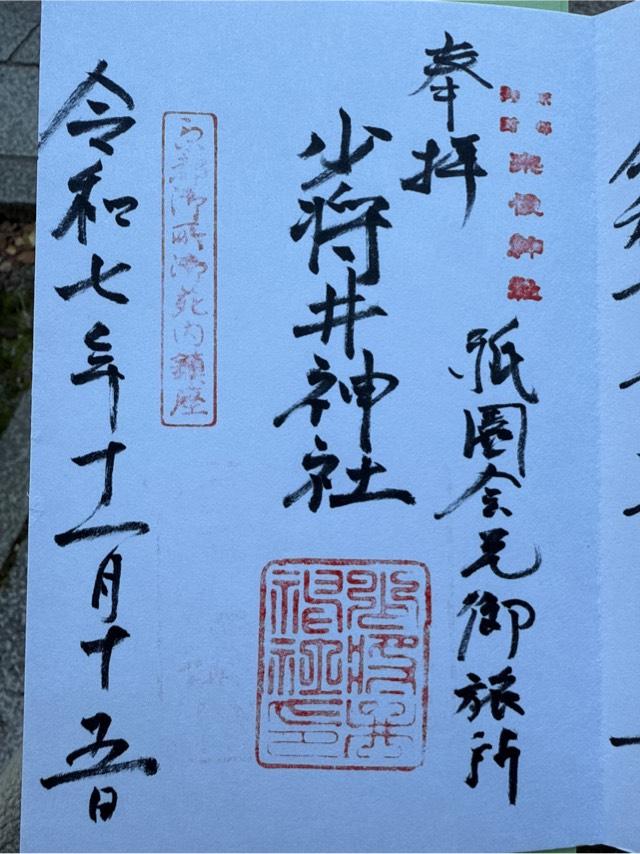 奉拝
京都
御所
宗像神社
祇園会元御旅所
少将井神社
少将井
神社之印
京都御所御苑内鎮座
令和七年十一月十五日